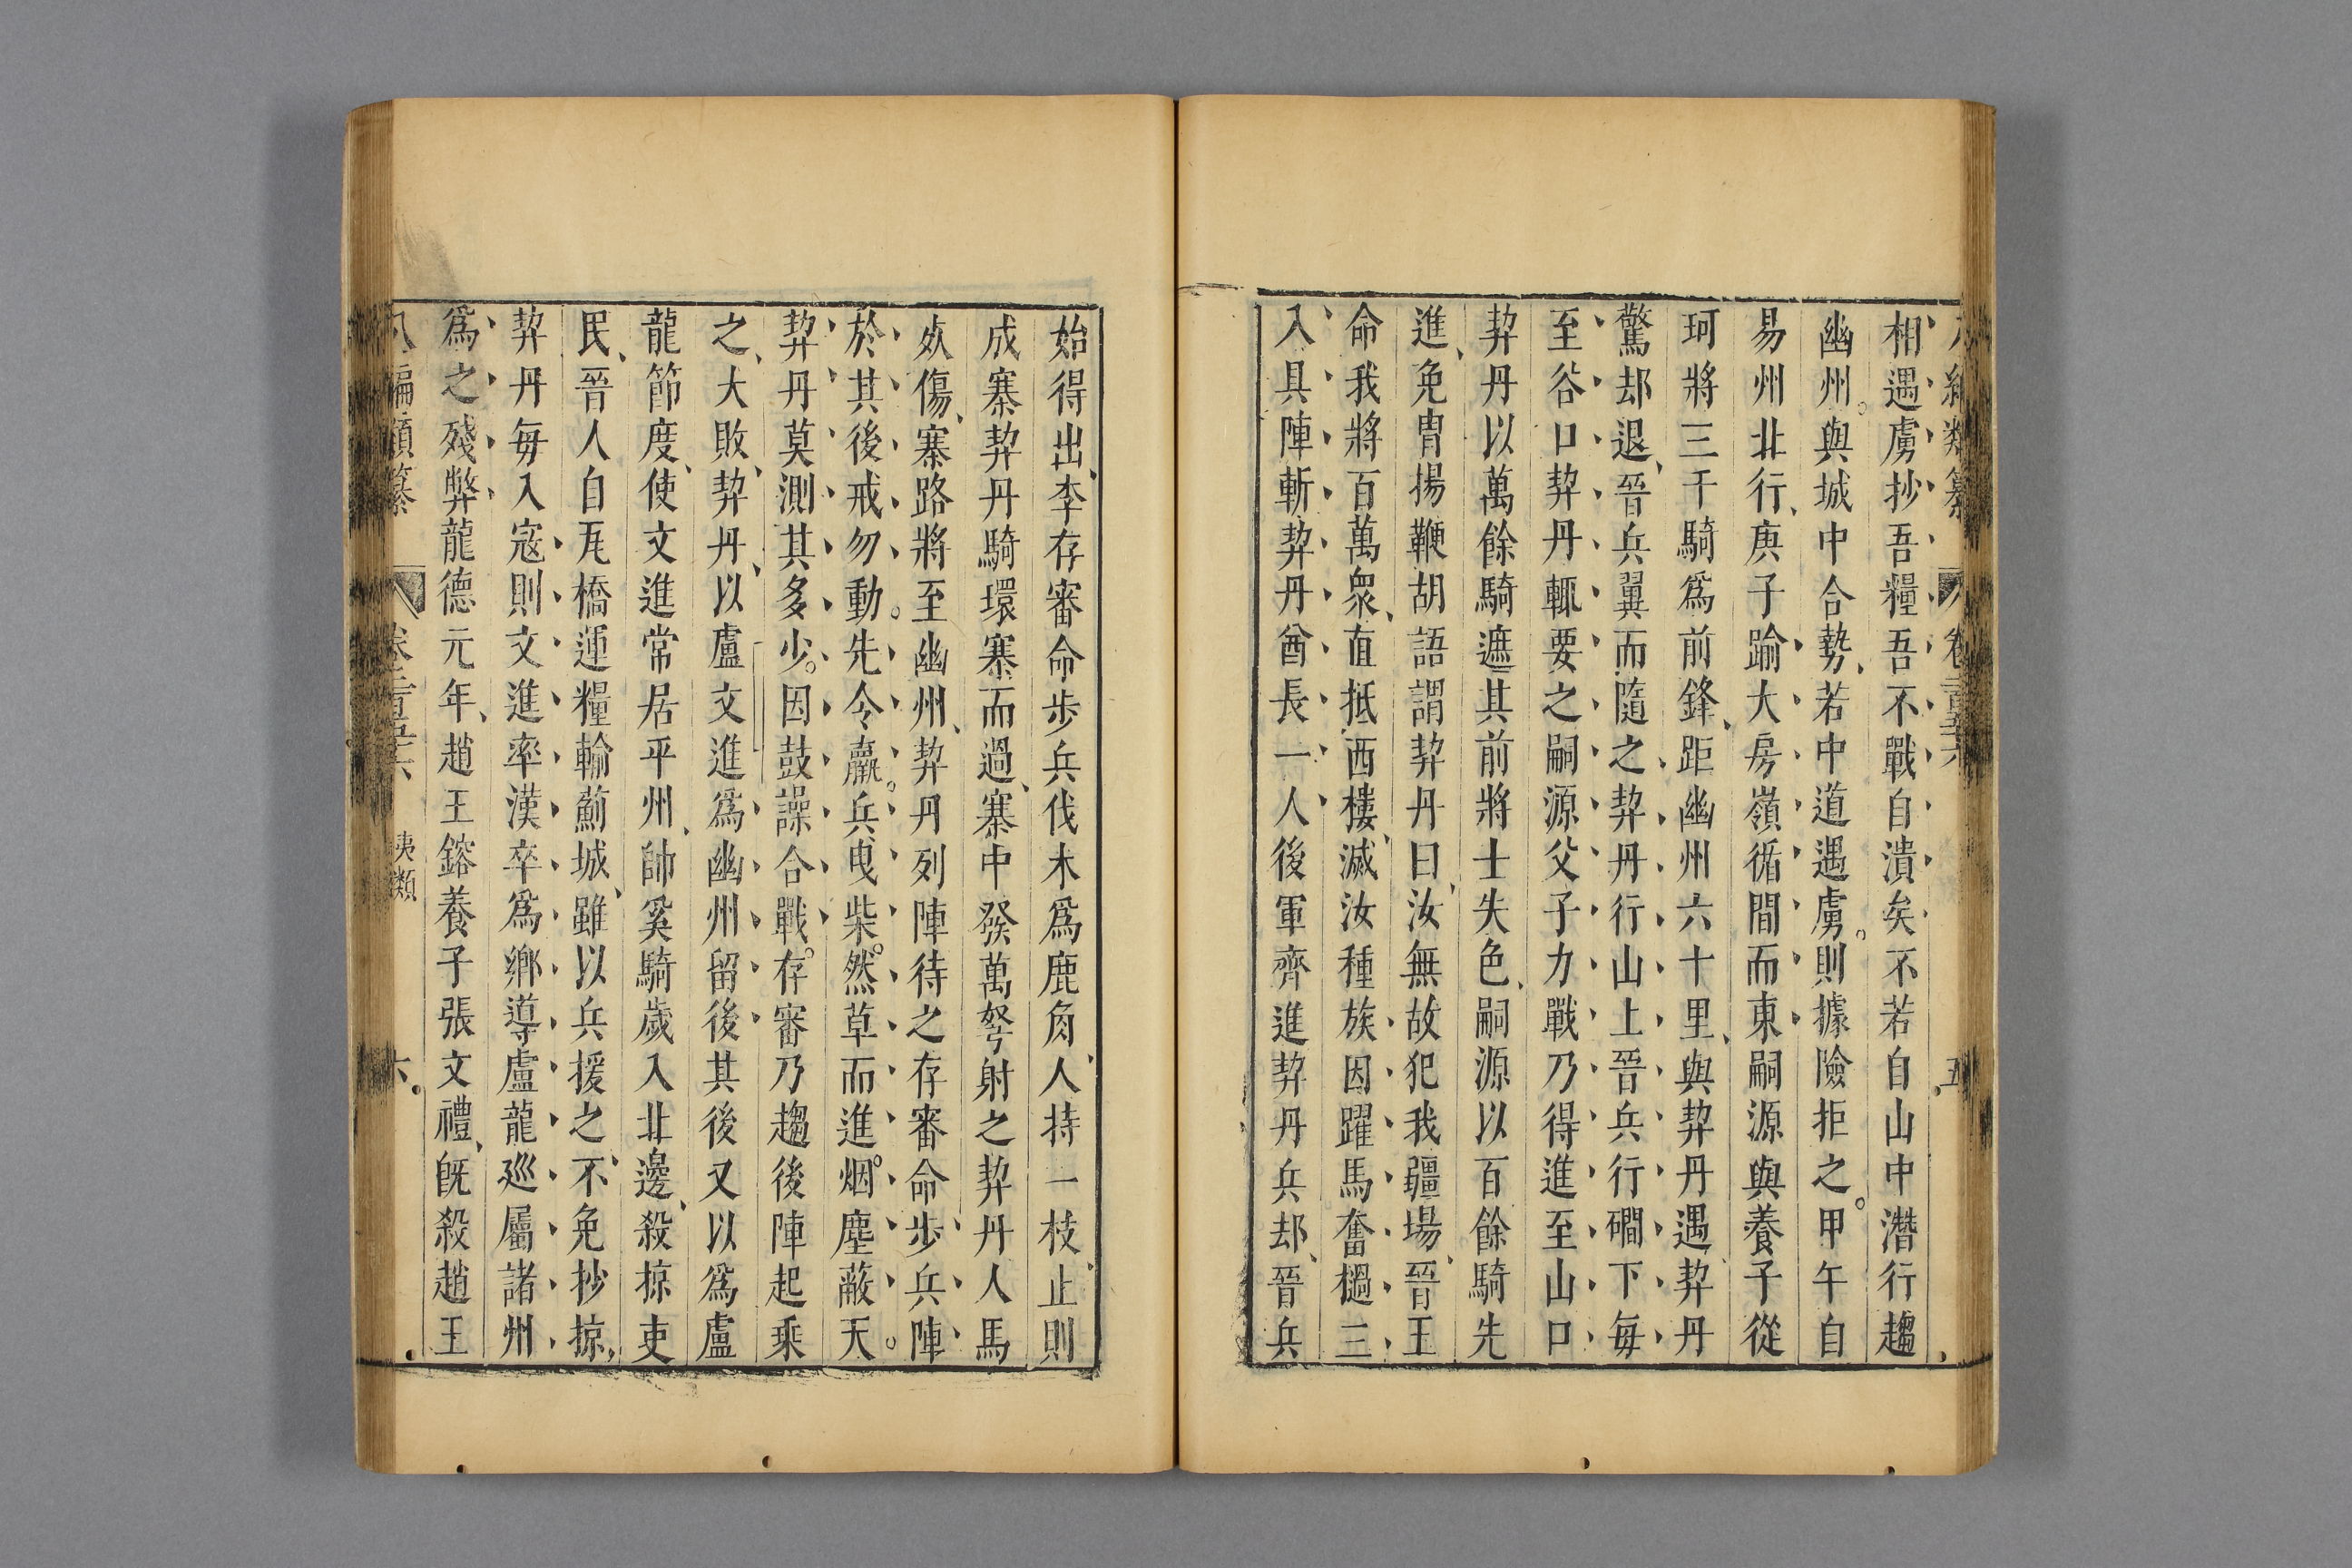 相遇虜抄吾糧吾不戰自潰矣不若自山中潛行趨
幽州。與城中合勢、若中道遇虜。則據險拒之。甲午自
易州北行、庚子踰大房嶺循間而東嗣源與養子從
珂將三千騎爲前鋒、距幽州六十里、與契丹遇、契丹
驚却退、晉兵翼而隨之、契丹行山上晉兵行磵下每
至谷口契丹輒要之嗣源父子力戰乃得進至山口
契丹以萬餘騎遮其前將士失色、嗣源以百餘騎先
進、免胄揚鞭胡語謂契丹曰、汝無故犯我疆場、晉王
命我將百萬衆、直抵西樓、滅汝種族因躍馬奮檛三
入其陣斬契丹酋長一人後軍齊進契丹兵却、晉兵
始得出、李存審命步兵伐木爲鹿角、人持一枝、止則
成寨契丹騎環寨而過、寨中發萬弩射之契丹人馬
死傷、寨路將至幽州、契丹列陣待之存審命步兵陣
於其後戒勿動。先令羸。兵曳柴。然草而進。烟塵蔽天。
契丹莫測其多少。因鼓譟合戰。存審乃趨後陣起乘
之、大敗、契丹、以盧文進爲幽州留後其後又以爲盧
龍節度、使文進常居平州、帥奚騎歲入北邊、殺掠吏
民、晉人自瓦橋運糧輸薊城、雖以兵援之、不免抄掠、
契丹每入寇則文進率漢卒爲鄉導盧龍巡屬諸州
爲之殘弊龍德元年、趙王鎔養子張文禮、旣殺趙王
八編類纂 卷二百五十六 夷類 六